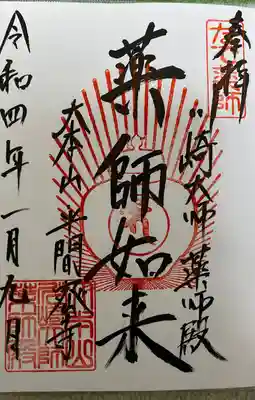 奉拝
川崎大師 薬師殿
薬師如来
大本山 平間寺
令和四年一月九日